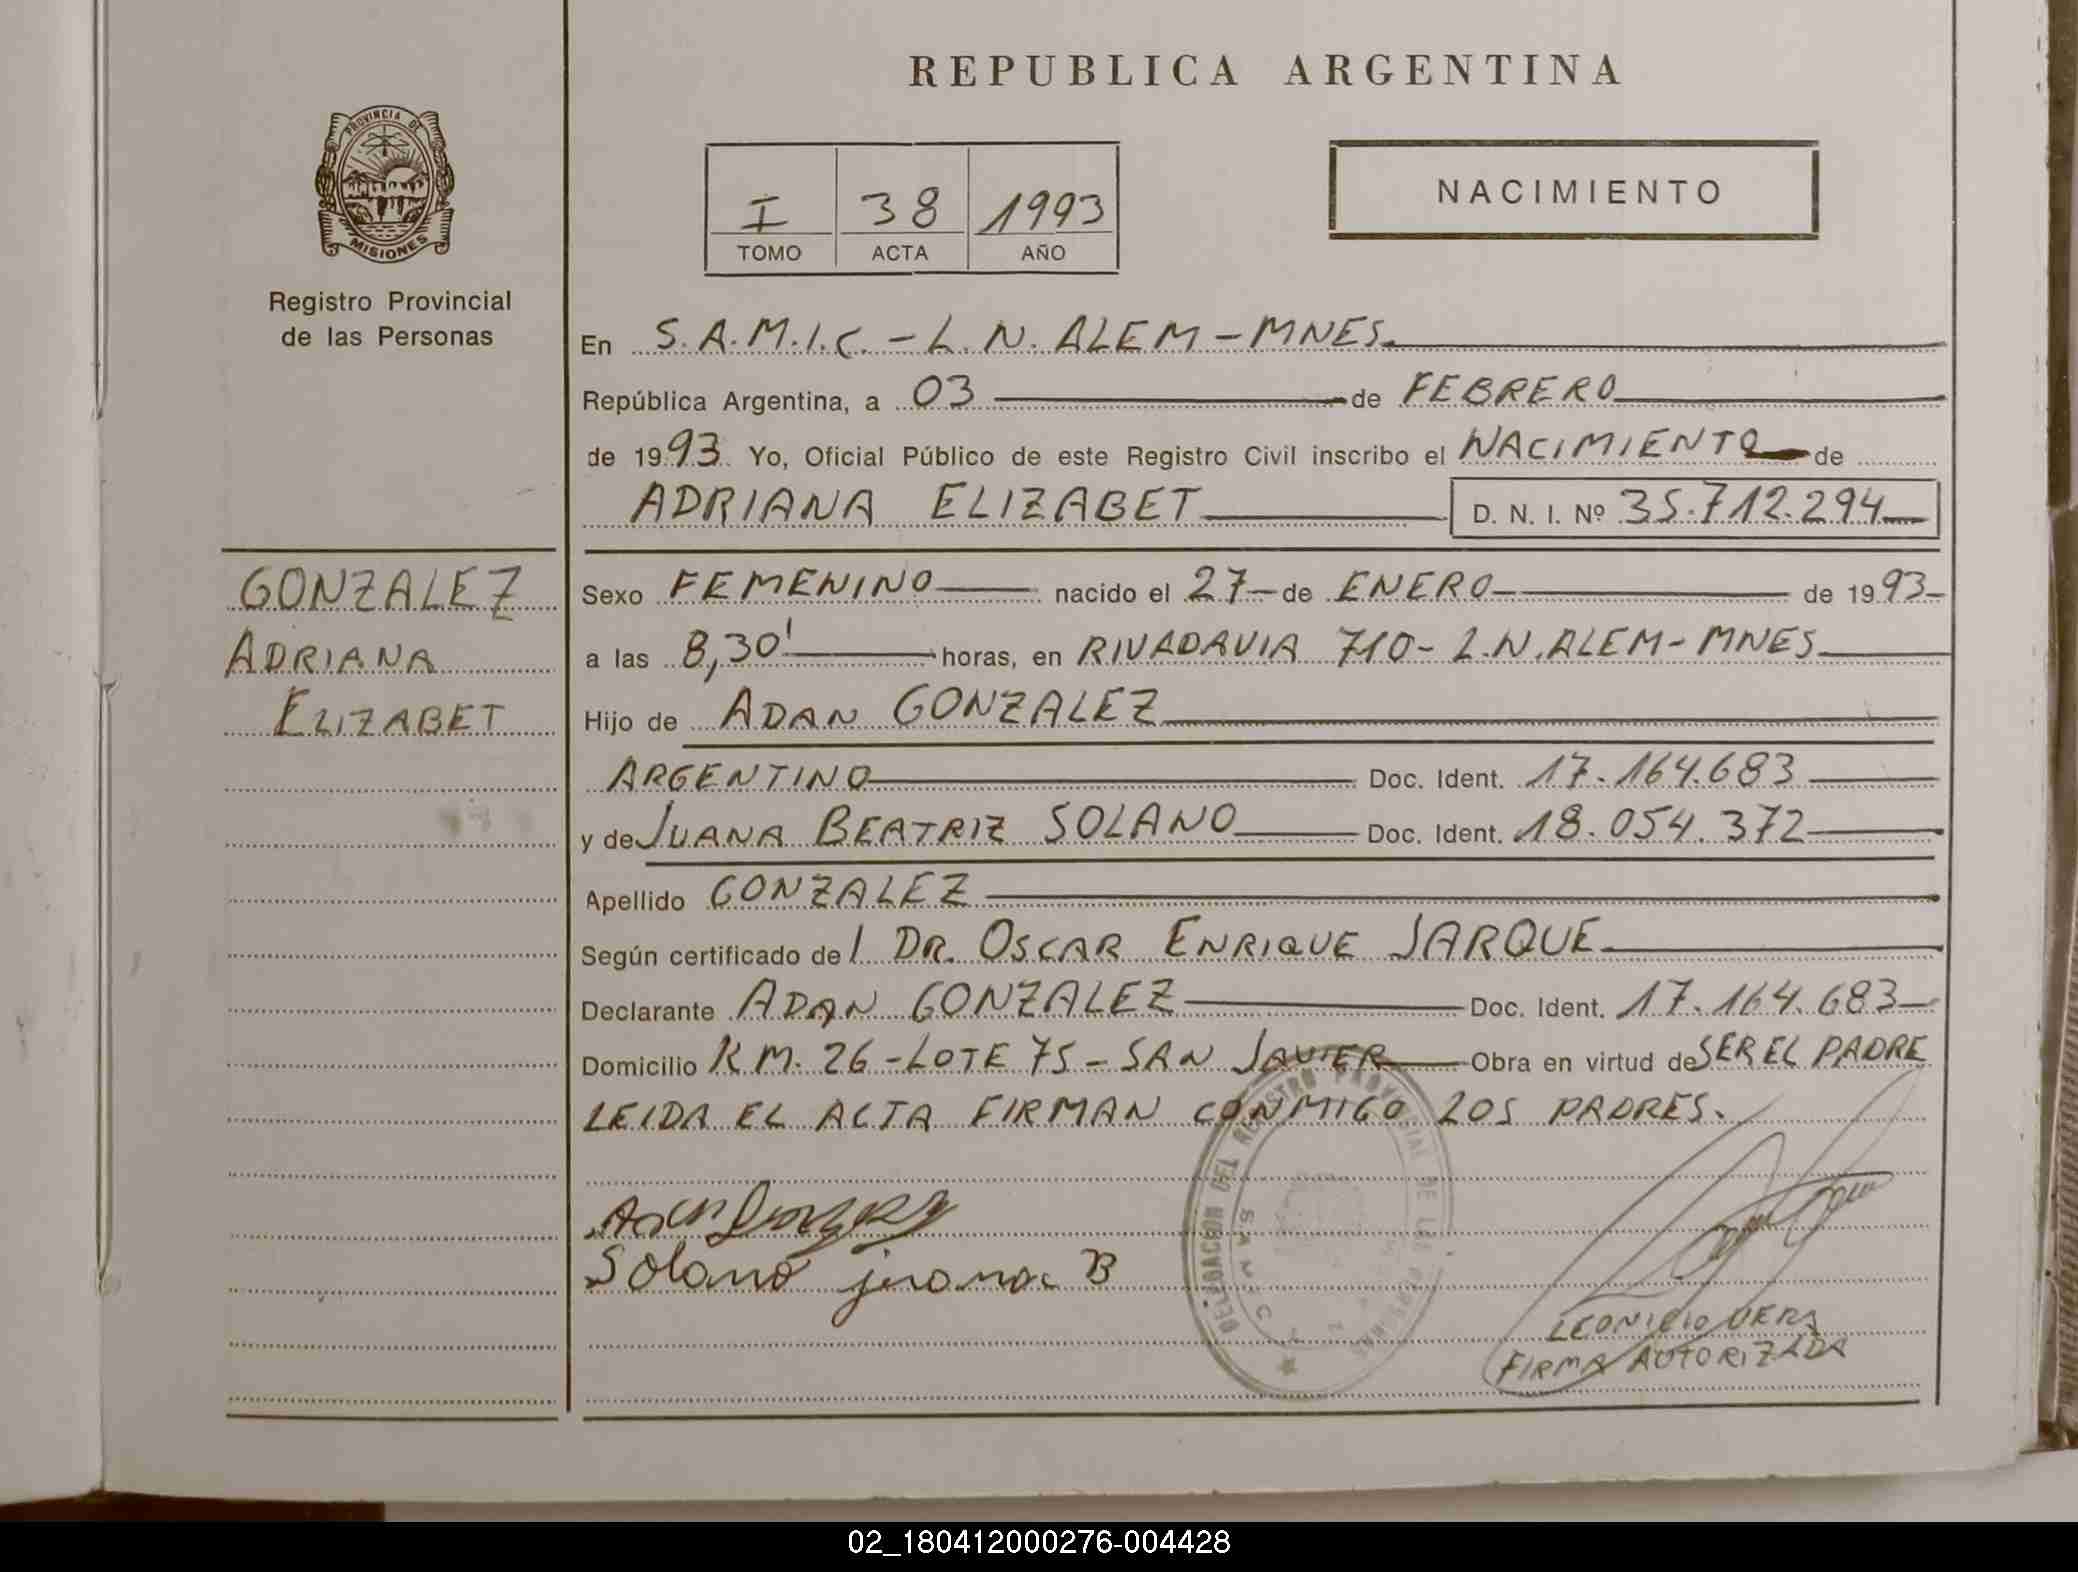 REPUBLICA ARGENTINA
PROVINCIA DE
MISIONES
Registro Provincial
de las Personas
I 38 1993
TOMO ACTA AÑO
NACIMIENTO
En S.A.M.I.C. - L.N. ALEM - MNES.
República Argentina, a 03 de FEBRERO
de 1993 Yo, Oficial Público de este Registro Civil inscribo el NACIMIENTO de
ADRIANA ELIZABET D. N. I. Nº 35.712.294
GONZALEZ
ADRIANA
ELIZABET
Sexo FEMENINO nacido el 27 de ENERO de 1993
a las 8,30' horas, en RIVADAVIA 710 - L.N. ALEM - MNES
Hijo de ADAN GONZALEZ
ARGENTINO Doc. Ident. 17.164.683
y de JUANA BEATRIZ SOLANO Doc. Ident. 18.054.372
Apellido GONZALEZ
Según certificado de l DR. OSCAR ENRIQUE JARQUE
Declarante ADAN GONZALEZ Doc. Ident. 17.164.683
Domicilio KM. 26 - LOTE 75 - SAN JAVIER Obra en virtud de SER EL PADRE
LEIDA EL ACTA FIRMAN CONMIGO LOS PADRES.
DELEGACION DEL REGISTRO PROVINCIAL DE LAS PERSONAS
Solano juana B
LEONICIO VERA
FIRMA AUTORIZADA
02_180412000276-004428